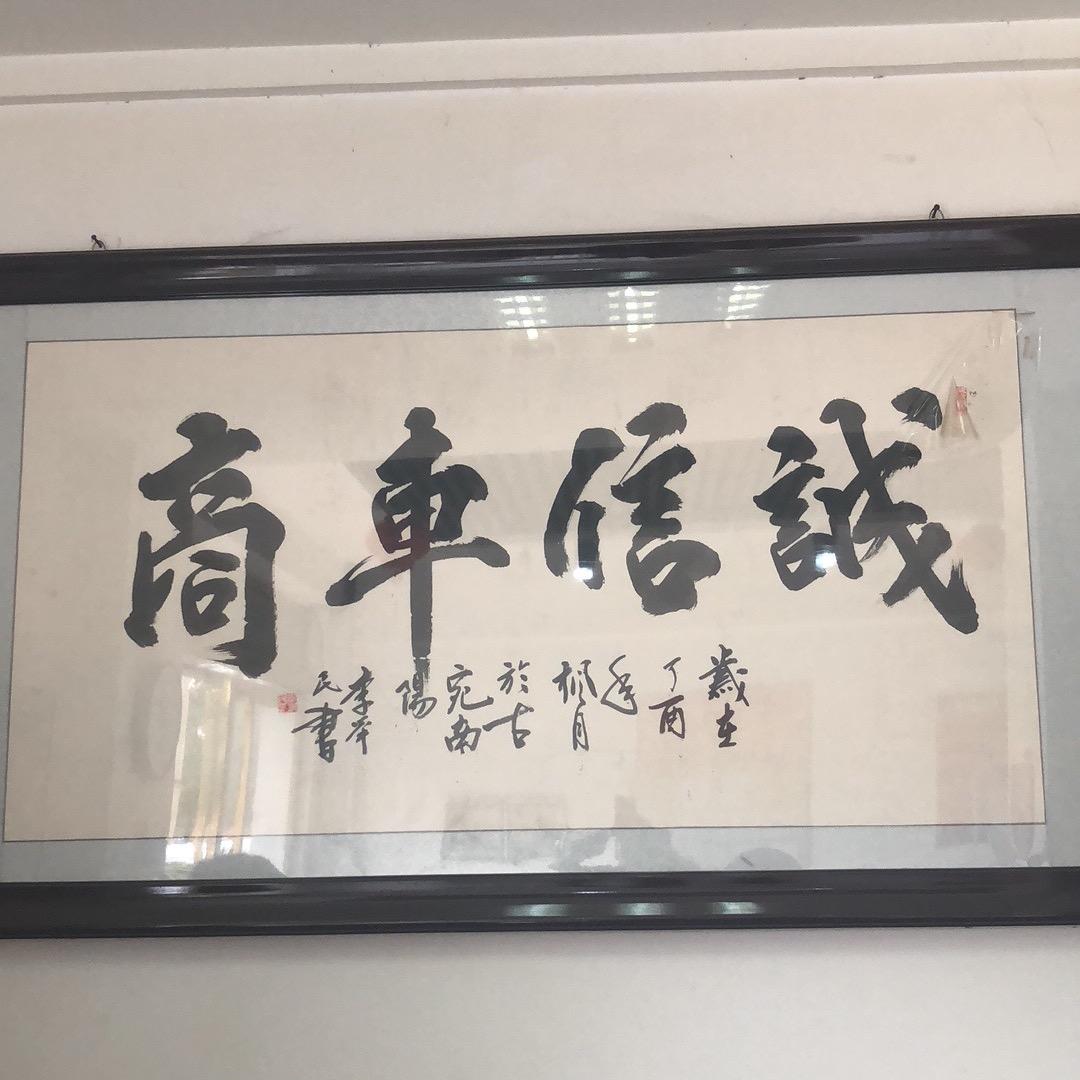 誠信車商
歲在
丁酉
年
桐月
於古
宛南
陽
李举
民書